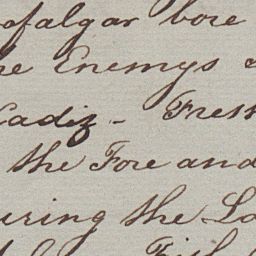 rafalgar bore
he Enemys
Cadiz - Fresh
the Fore and
uring the La